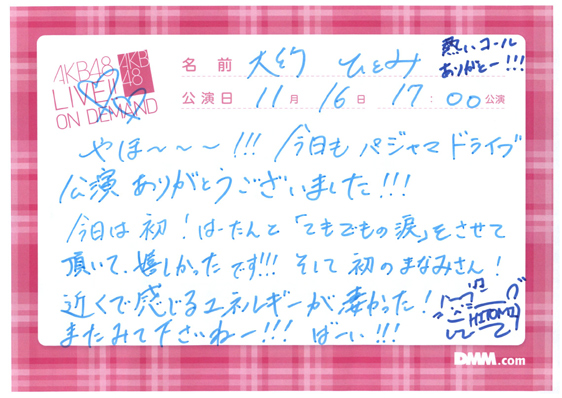 AKB48
LIVE!!
ON DEMAND
AKB
48
名前 大島 ひとみ
熱いコール
ありがとー!!!
公演日 11月 16日 17:00公演
やほ〜〜〜!!! 今日も パジャマドライブ
公演 ありがとうございました!!!
今日は 初! はーたんと「てもでもの涙」をさせて
頂いて、嬉しかったです!!! そして 初の まなみさん!
近くで感じるエネルギーが凄かった!
またみて下さいねー!!! ばーい!!!
HITOMI
DMM.com